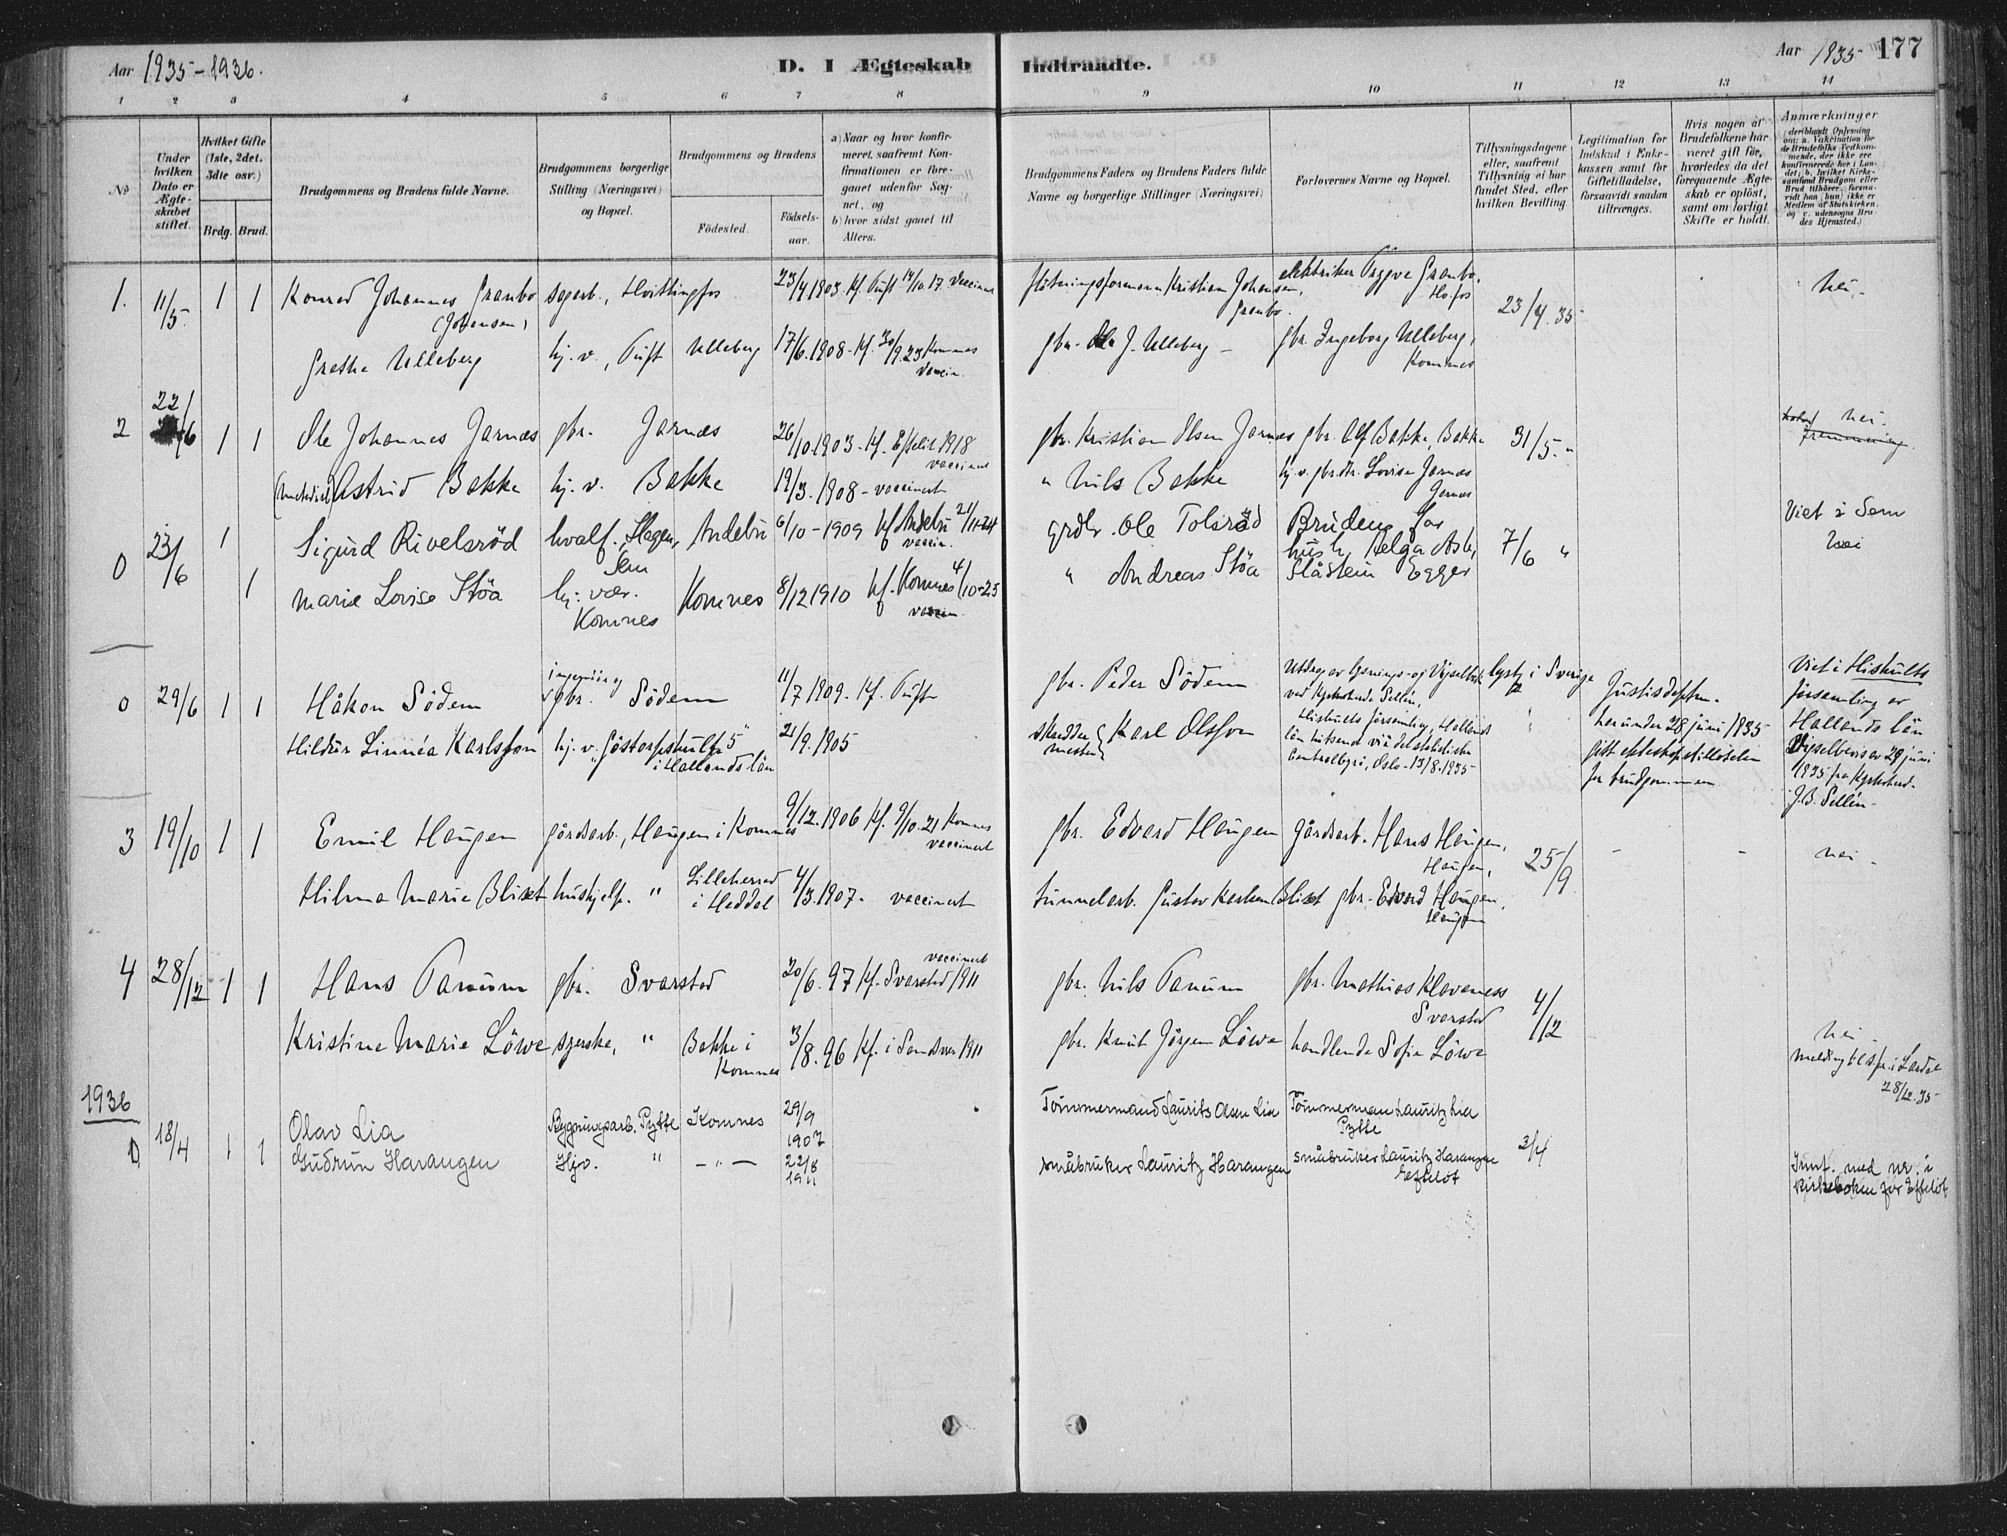 Aar 1935-1936.
D. I Ægteskab
Indtraadte.
Aar 1935- 177
1 2 3 4 5 6 7 8 9 10 11 12 13 14
No
Under hvilken Dato er Ægteskabet stiftet.
Hvilket Gifte (1ste, 2det, 3die osv.)
Brdg. Brud.
Brudgommens og Brudens fulde Navne.
Brudgommens borgerlige Stilling (Næringsvei) og Bopæl.
Brudgommens og Brudens
Födested. Födselsaar.
a) Naar og hvor konfirmeret, saafremt Konfirmationen er foregaaet udenfor Sognet, og
b) hvor sidst gaaet til Alters.
Brudgommens Faders og Brudens Faders fulde Navne og borgerlige Stillinger (Næringsvei)
Forlovernes Navne og Bopæl.
Tillysningsdagene eller, saafremt Tillysning ei har fundet Sted, efter hvilken Bevilling
Legitimation for Indskud i Enkekassen samt for Giftetilladelse, forsaavidt saadan tiltrænges.
Hvis nogen af Brudefolkene har været gift før, hvorledes da det foregaaende Ægteskab er opløst, samt om lovligt Skifte er holdt.
Anmærkninger
1. 11/5. 1 1 Konrad Johannes Granbo sagarb., Hvittingfos 23/4 1903. kf. Tuft 14/10.17 Vaccinert fløtningsformann Kristian Johansen, elektriker Trygve Granbo, 23/4.35 nei.-
(Johansen) Granbo. Hofos
Grethe Ulleberg hj.v., Tuft Ulleberg 17/6.1908- kf. 30/9.23 Komnes gbr. Ola J. Ulleberg - gbr. Ingeborg Ulleberg,
vaccin. Komnes
2 22/6 1 1 Ole Johannes Jarnæs gbr. Jarnæs 26/10.1903- kf. Efteløt 1918 gbr. Kristian Olsen Jarnæs gbr. Olf Bakke, Bakke 31/5. " nei.
vaccinert
(metodist) Astrid Bakke hj.v. Bakke 19/3.1908 - vaccinert " Nils Bakke hj.v. gbr.dtr. Lovise Jarnæs
Jarnæs
0 23/6 1 Sigurd Rivelsröd hvalf. Slagen, Andebu 6/10-1909 kf. Andebu 21/11-24 grdbr. Ole Tolsröd Brudens far 7/6 " Viet i Sem
Sem vaccin. nei
1 Marie Lovise Stöa hj. vær. Komnes 8/12 1910 kf. Komnes 4/10-25 " Andreas Stöa hush. Helga Asb.
Komnes vaccin. Slåstein Egger
0 29/6 1 1 Håkon Södem ingeniör og gbr. Södem 11/7 1909- kf. Tuft gbr. Peder Södem Utdrag av lysnings- og Vigselbok lyst i Sverige Justisdeptm. Viet i Hishults
ved Kyrkoherde Sellén, herunder 28 juni 1935 församling av
Hildur Linnéa Karlsson hj.v. "Göstorpshult 5" 21/9.1905 skreddermester Karl Olsson Hishults församling, Hallands gitt ekteskapstillatelse Hallands län
i Hallands län län tilsendt via det statistiske for brudgommen Vigselbevis av 29 juni
Centralbyrå, Oslo - 13/8.1935 1935 fra Kyrkoherd.
J.B. Sellén-
3 19/10 1 1 Emil Haugen gårdsarb., Haugen i Komnes 9/12.1906 kf. 9/10.21 Komnes gbr. Edvard Haugen gårdsarb. Hans Haugen, 25/9 - - nei -
vaccinert Haugen,
Hilma Marie Blixt hushjelp. " Lilleherred i Heddal 4/3.1907- vaccinert tunnelarb. Gustav Karlsen Blixt gbr. Edvard Haugen,
Haugen
4 28/12 1 1 Hans Tanum gbr. Svarstad 20/6.97 kf. Svarstad 1911 vaccinert gbr. Nils Tanum gbr. Mathias Klaveness 4/12
Svarstad
Kristine Marie Löwe syerske, " Bakke i Komnes 3/8.96 kf. i Sandsvær 1911 gbr. Knut Jörgen Löwe handlende Sofie Löwe nei
melding til spr. i Lardal
28/12.35
1936
0 18/4 1 1 Olav Lia Bygningsarb. Pytte Komnes 29/9 1907 Tömmermand Laurits Olsen Lia Tömmerman Lauritz Lia 3/4
Pytte
Gudrun Harangen Hjv. " - " - 22/8 1911 småbruker Lauritz Harangen småbruker Lauritz Harangen Innf. med nr. 1 i
Efteløt kirkeboken for Efteløt